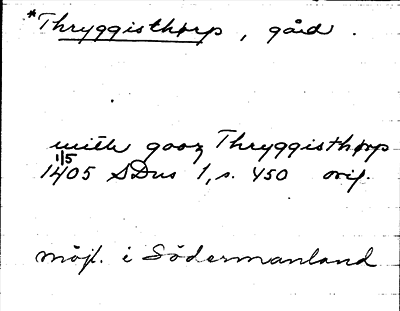 *Thryggisthorp, gård.
mith gooz Thryggisthorp
1/5
1405 SDns 1, s. 450 orig.
möjl. i Södermanland